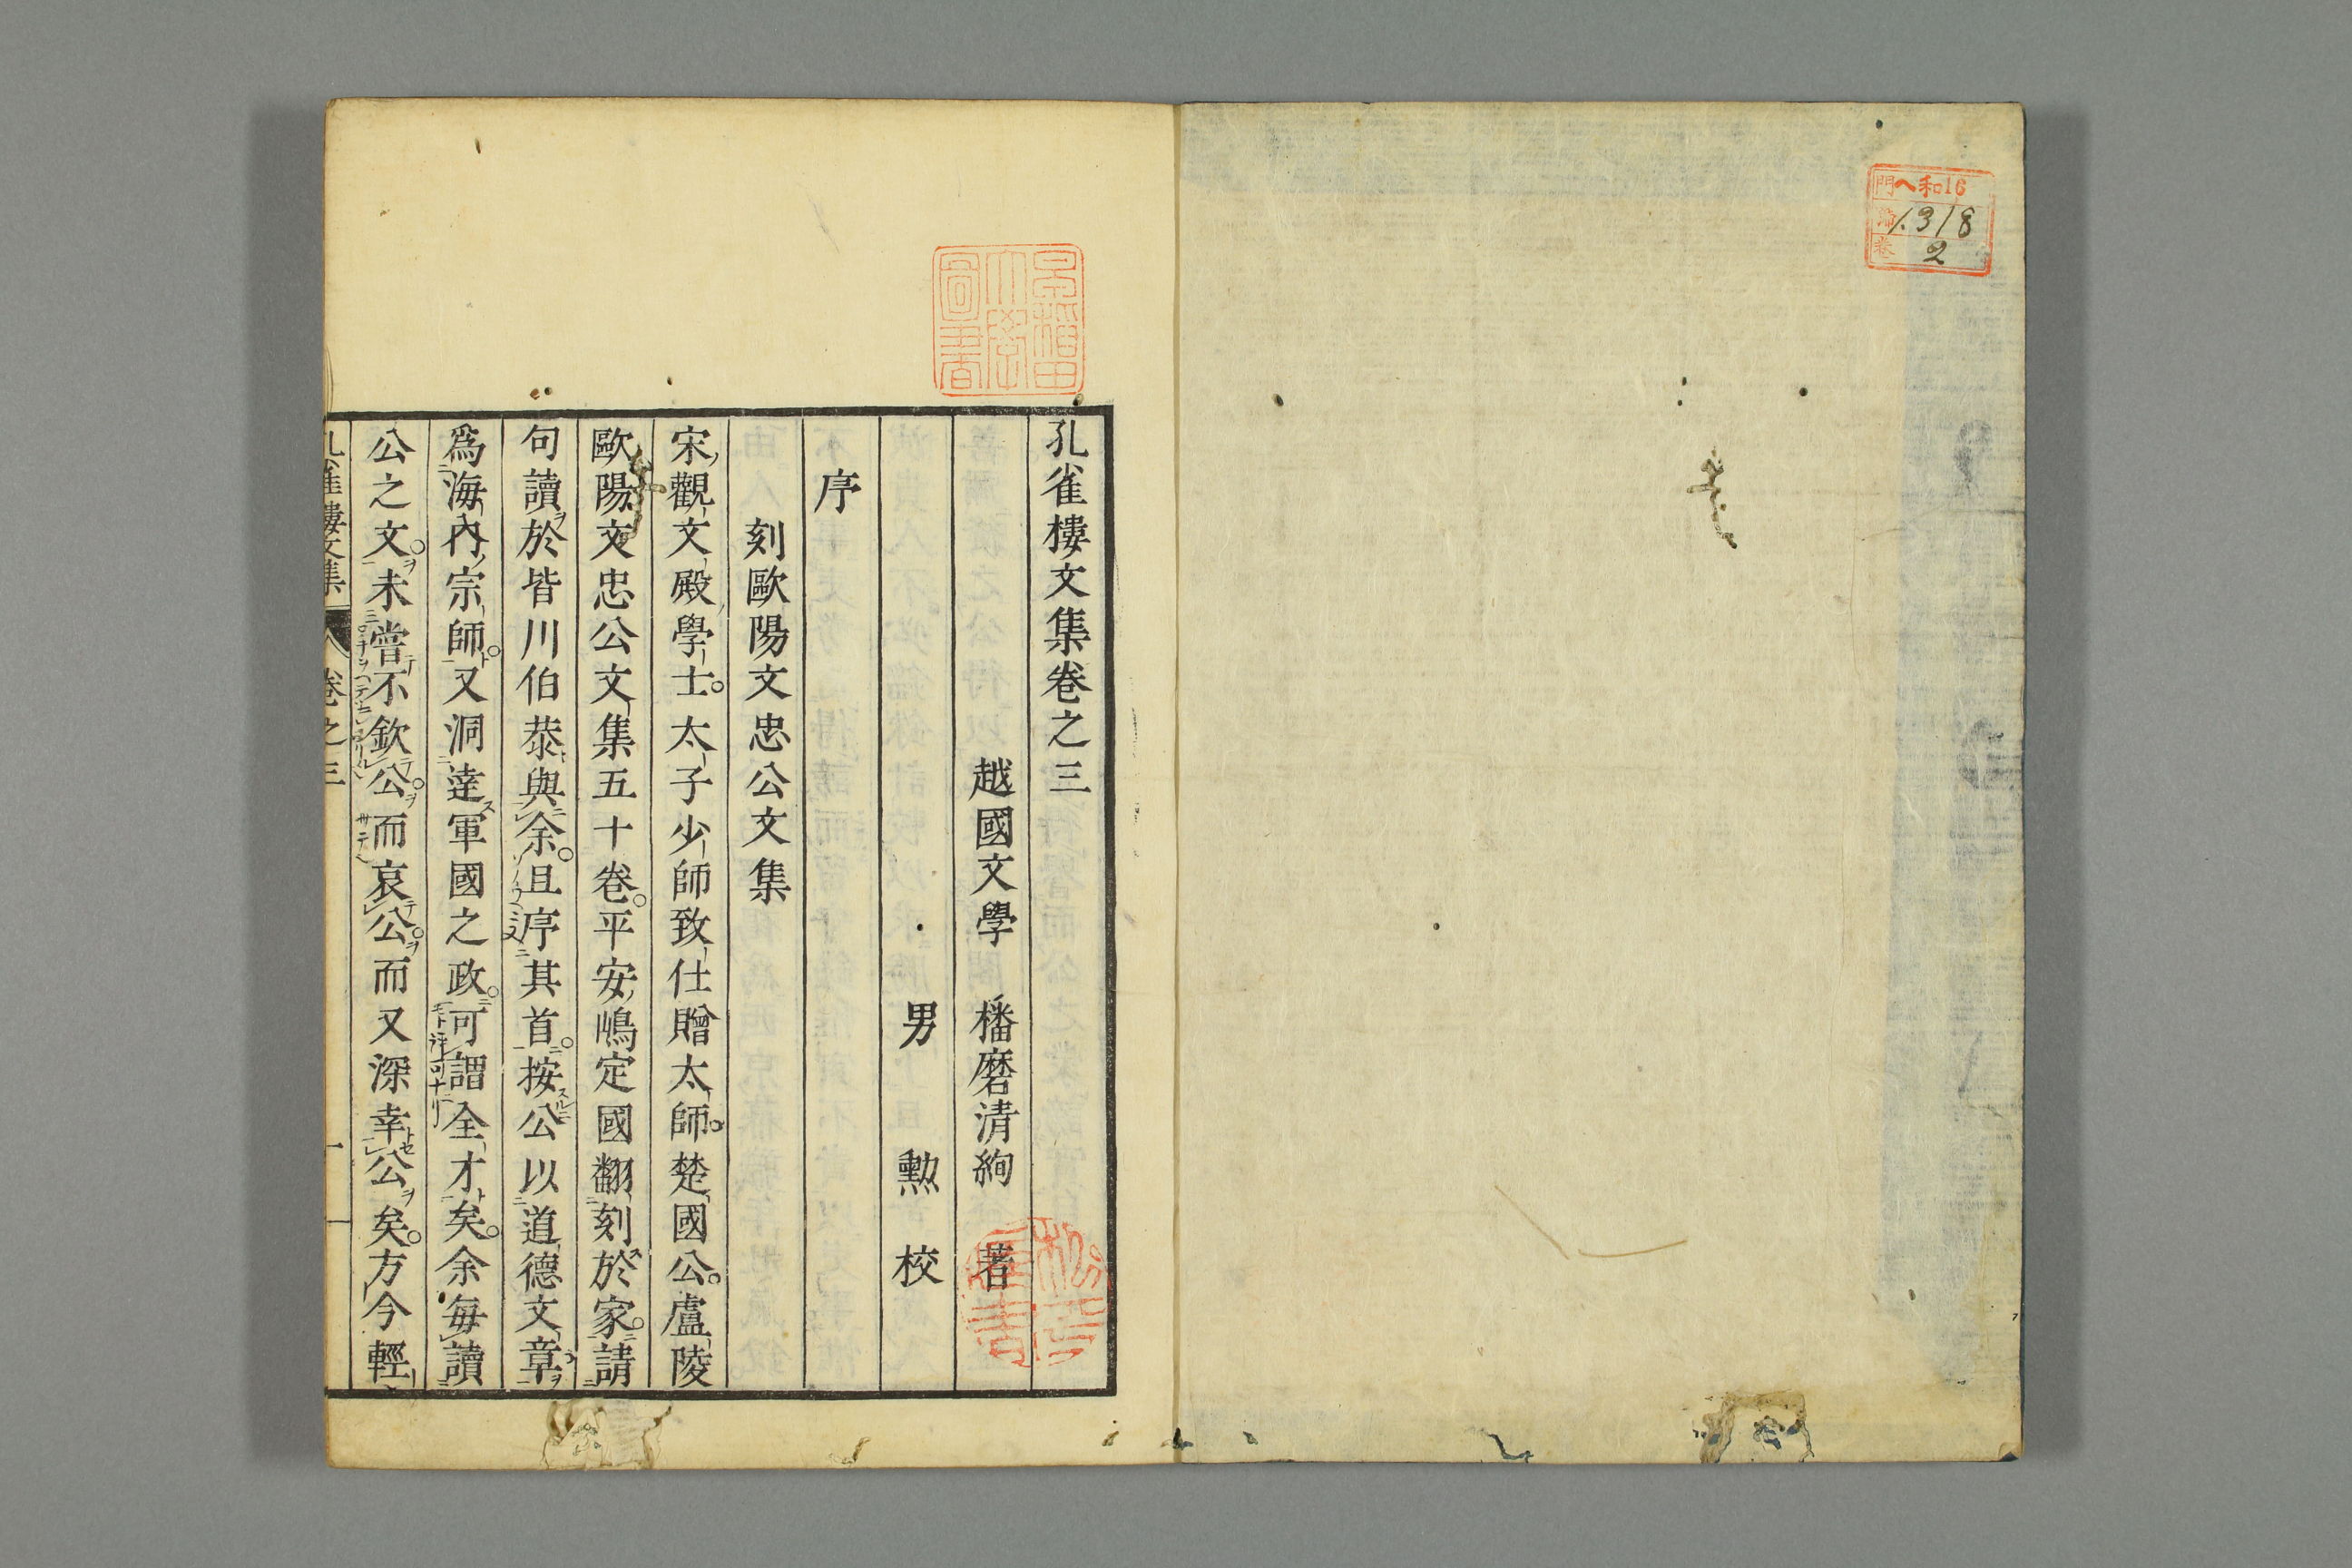 門 ヘ和16
1318
卷 2
早稲田大學圖書
孔雀樓文集卷之三
越國文學 播磨清絢 著
男 勲 校
序
刻歐陽文忠公文集
宋觀文殿學士太子少師致仕贈太師楚國公盧陵
歐陽文忠公文集五十卷平安嶋定國翻刻於家請
句讀於皆川伯恭與余且序其首按公以道德文章
爲海內宗師又洞達軍國之政可謂全才矣余每讀
公之文未嘗不欽公而哀公而又深幸公矣方今輕
孔雀樓文集 卷之三 一